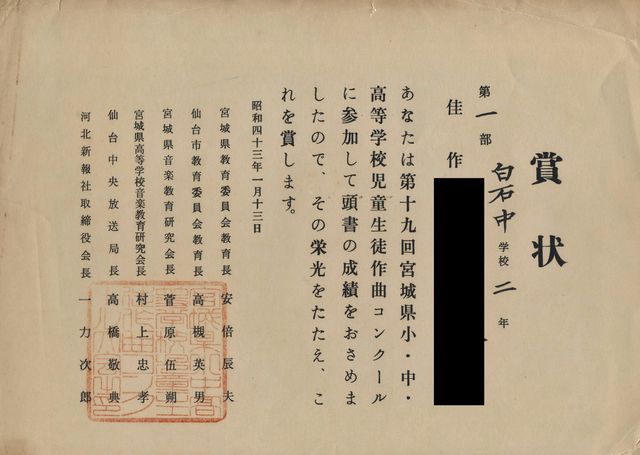 賞状
第一部 白石中学校二年
佳作
あなたは第十九回宮城県小・中・
高等学校児童生徒作曲コンクール
に参加して頭書の成績をおさめま
したので、その栄光をたたえ、こ
れを賞します。
昭和四十三年一月十三日
宮城県教育委員会教育長 安倍辰夫
仙台市教育委員会教育長 高槻英男
宮城県音楽教育研究会長 菅原伍朔
宮城県高等学校音楽教育研究会長 村上忠孝
仙台中央放送局長 高橋敬典
河北新報社取締役会長 一力次郎